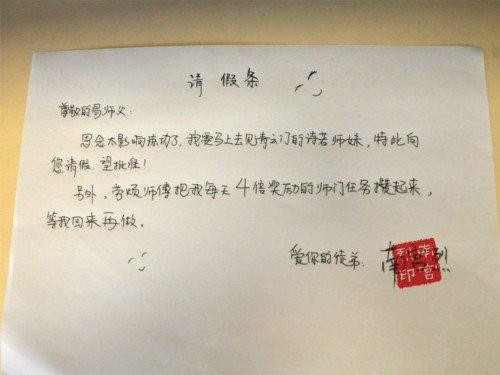 请假条
尊敬的易师父:
思念太影响练功了,我要马上去见青云门的诗若师妹,特此向
您请假 望批准!
另外,劳烦师傅把我每天4倍奖励的师门任务攒起来,
等我回来再做。
爱你的徒弟: 南宫烈
南宫烈印